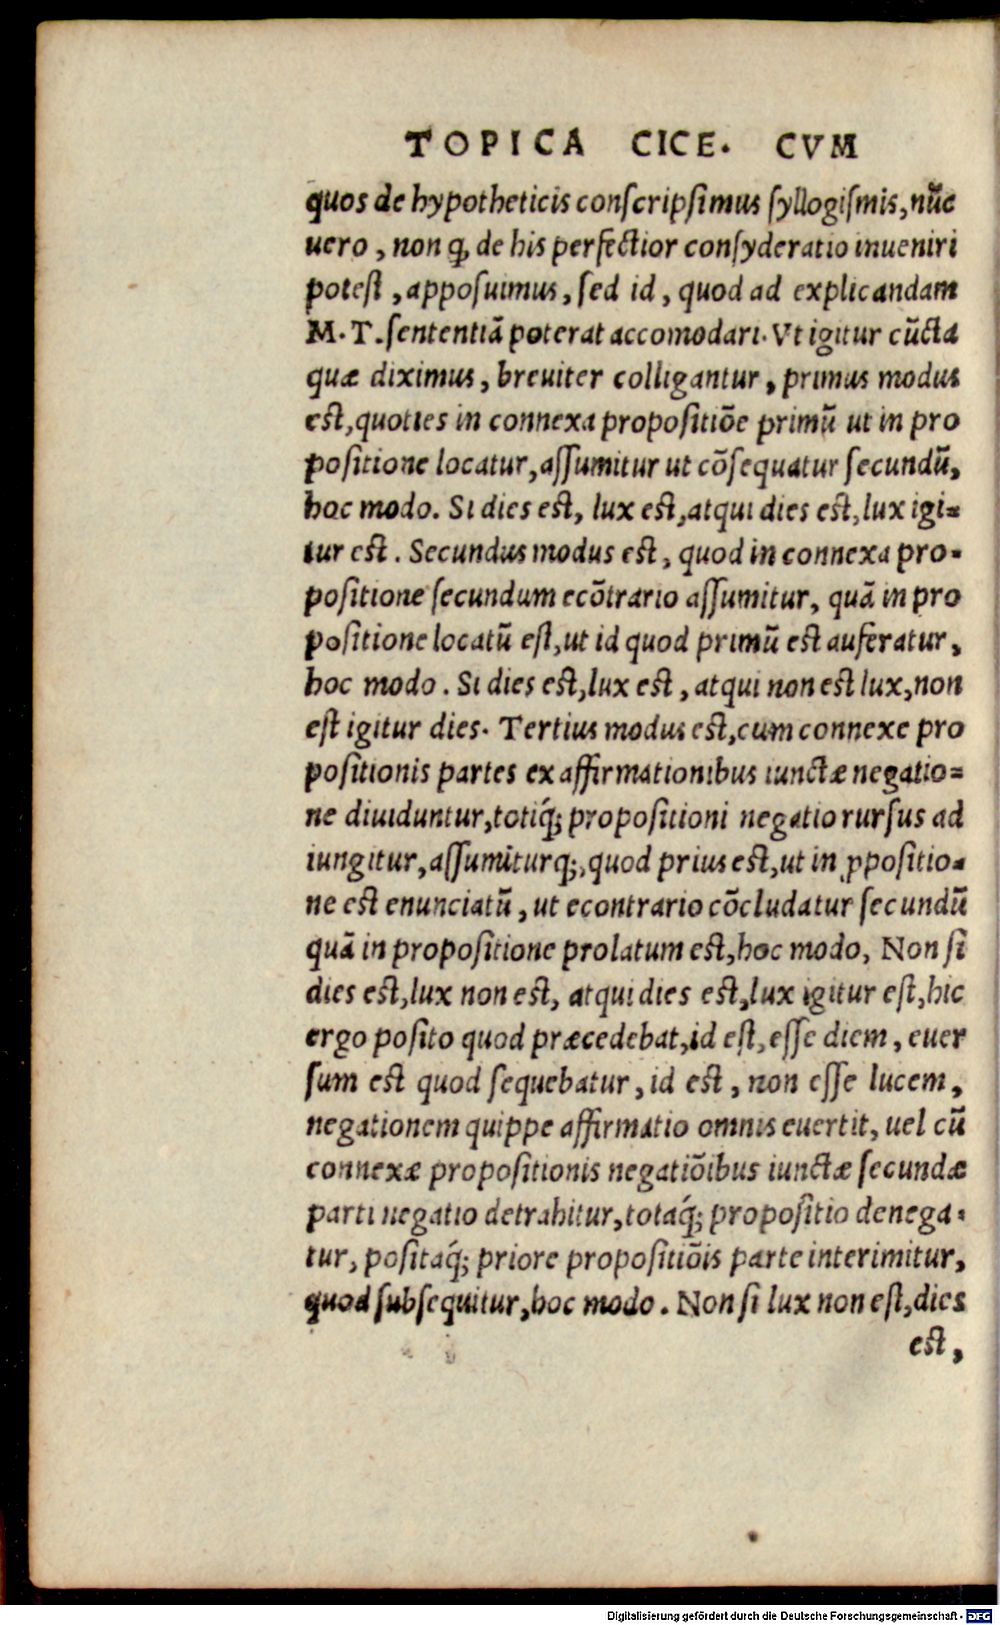 TOPICA CICE. CVM
quos de hypotheticis conscripsimus syllogismis, nũc
uero, non ꝙ de his perfectior consyderatio inueniri
potest, apposuimus, sed id, quod ad explicandam
M. T. sententiã poterat accomodari. Vt igitur cũcta
quæ diximus, breuiter colligantur, primus modus
est, quoties in connexa propositiõe primũ ut in pro
positione locatur, assumitur ut cõsequatur secundũ,
hoc modo. Si dies est, lux est, atqui dies est, lux igi=
tur est. Secundus modus est, quod in connexa pro=
positione secundum ecõtrario assumitur, quã in pro
positione locatũ est, ut id quod primũ est auferatur,
hoc modo. Si dies est, lux est, atqui non est lux, non
est igitur dies. Tertius modus est, cum connexe pro
positionis partes ex affirmationibus iunctæ negatio=
ne diuiduntur, totiq́; propositioni negatio rursus ad
iungitur, assumiturq;, quod prius est, ut in ꝓpositio=
ne est enunciatũ, ut econtrario cõcludatur secundũ
quã in propositione prolatum est, hoc modo, Non si
dies est, lux non est, atqui dies est, lux igitur est, hic
ergo posito quod præcedebat, id est, esse diem, euer
sum est quod sequebatur, id est, non esse lucem,
negationem quippe affirmatio omnis euertit, uel cũ
connexæ propositionis negatiõibus iunctæ secundæ
parti negatio detrahitur, totaq́; propositio denega=
tur, positaq́; priore propositiõis parte interimitur,
quod subsequitur, hoc modo. Non si lux non est, dies
est,
Digitalisierung gefördert durch die Deutsche Forschungsgemeinschaft - DFG